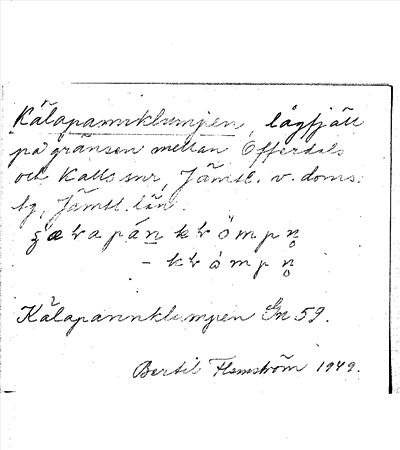 Kälapannklumpen, lågfjäll
på gränsen mellan Offerdals
och Kalls snr, Jämtl. v. doms.
tg, Jämtl. län.
krömpn̥
- kråmpn̥
Kälapannklumpen Gn 59.
Bertil Flemström 1949.